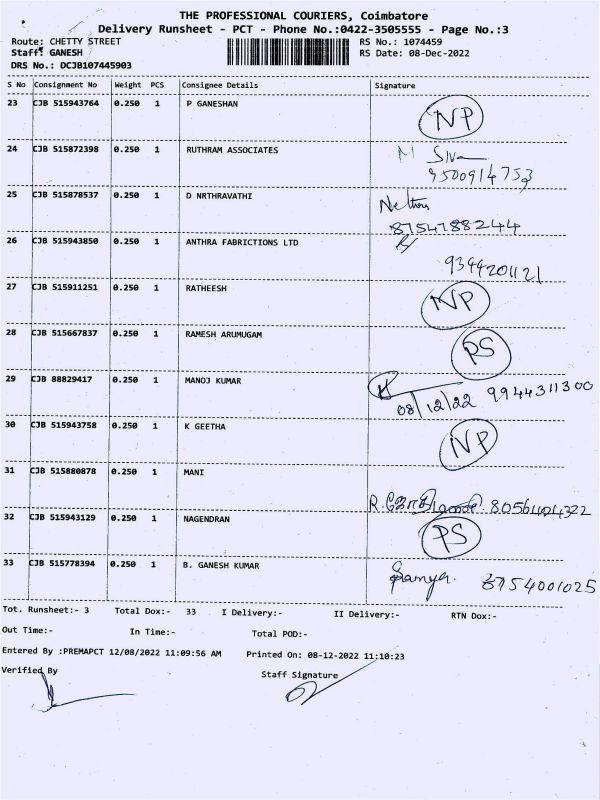 THE PROFESSIONAL COURIERS, Coimbatore
Delivery Runsheet - PCT - Phone No.:0422-3505555 - Page No.:3
Route: CHETTY STREET RS No.: 1074459
Staff: GANESH RS Date: 08-Dec-2022
DRS No.: DCJB107445903
S No Consignment No Weight PCS Consignee Details Signature
23 CJB 515943764 0.250 1 P GANESHAN NP
24 CJB 515872398 0.250 1 RUTHRAM ASSOCIATES M Siva
9500914753
25 CJB 515878537 0.250 1 D NRTHRAVATHI
8754788244
26 CJB 515943850 0.250 1 ANTHRA FABRICTIONS LTD
9344201121
27 CJB 515911251 0.250 1 RATHEESH NP
28 CJB 515667837 0.250 1 RAMESH ARUMUGAM PS
29 CJB 88829417 0.250 1 MANOJ KUMAR 9944311300
08/12/22
30 CJB 515943758 0.250 1 K GEETHA NP
31 CJB 515880878 0.250 1 MANI
32 CJB 515943129 0.250 1 NAGENDRAN PS
33 CJB 515778394 0.250 1 B. GANESH KUMAR Ramya 8754001025
Tot. Runsheet:- 3 Total Dox:- 33 I Delivery:- II Delivery:- RTN Dox:-
Out Time:- In Time:- Total POD:-
Entered By :PREMAPCT 12/08/2022 11:09:56 AM Printed On: 08-12-2022 11:10:23
Verified By Staff Signature